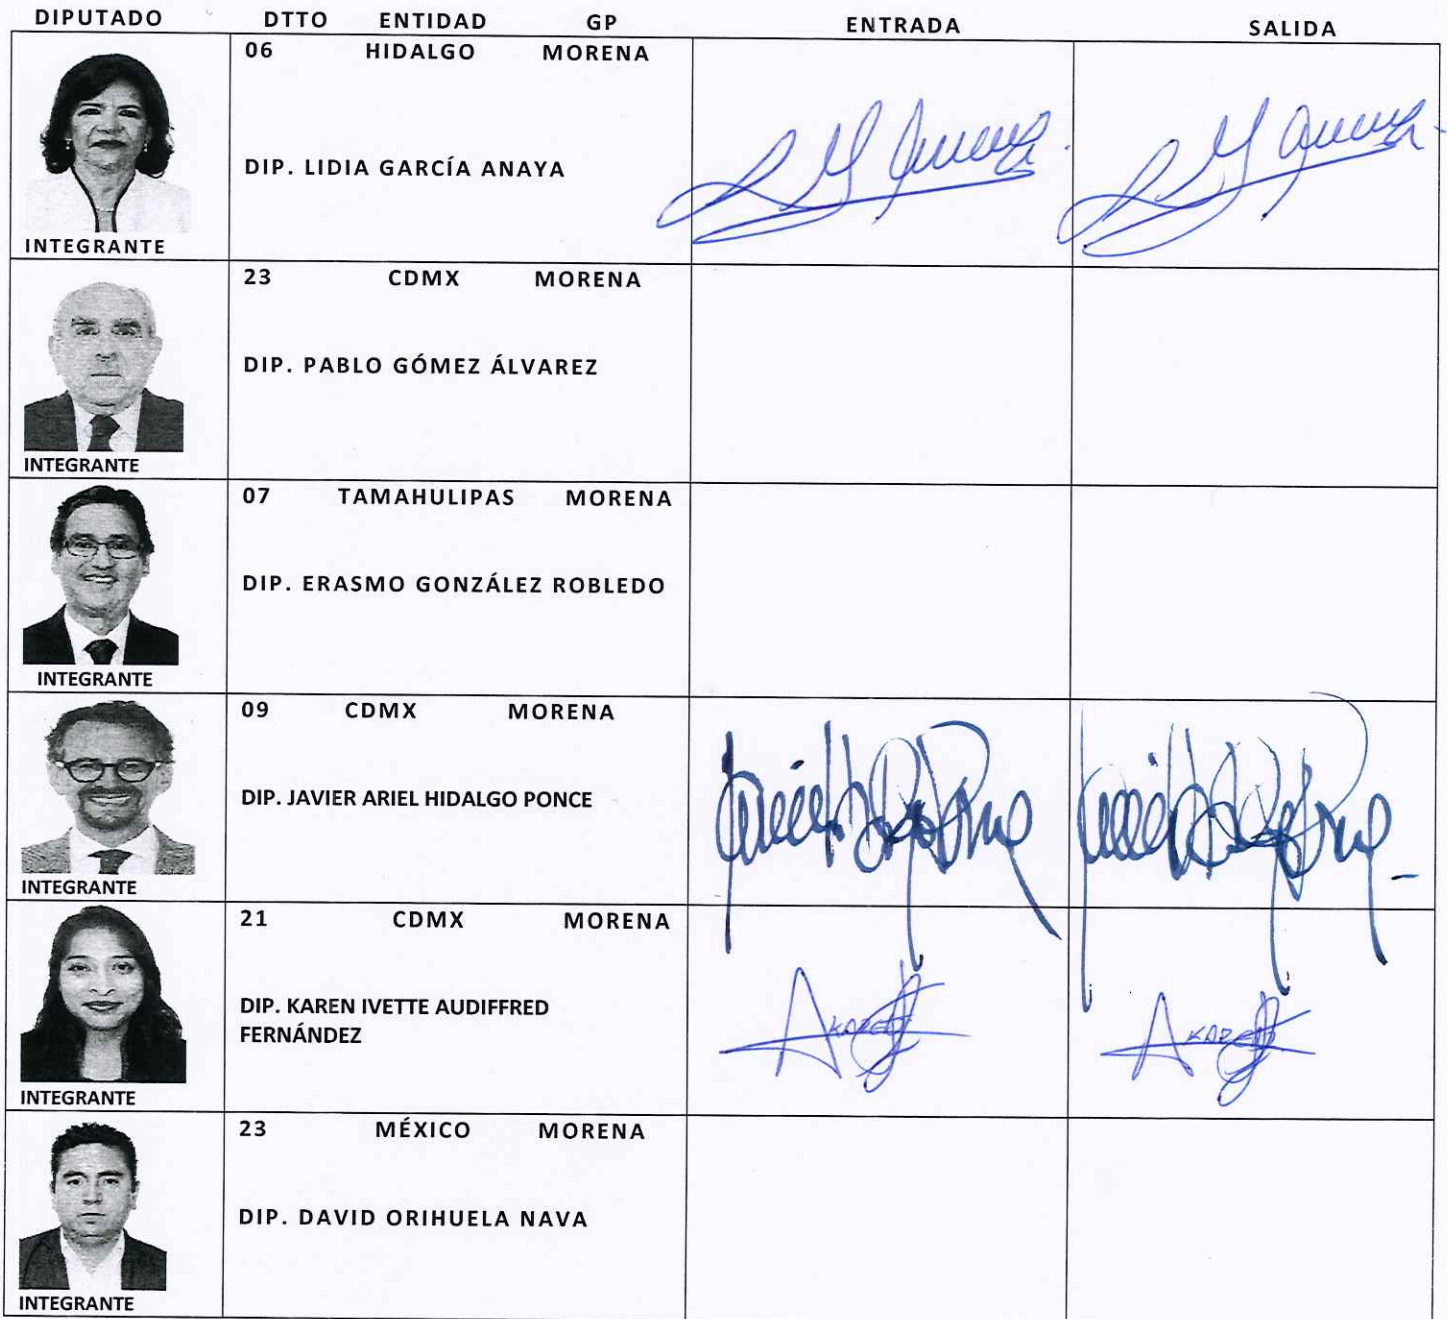 DIPUTADO DTTO ENTIDAD GP ENTRADA SALIDA
06 HIDALGO MORENA
DIP. LIDIA GARCÍA ANAYA
INTEGRANTE
23 CDMX MORENA
DIP. PABLO GÓMEZ ÁLVAREZ
INTEGRANTE
07 TAMAHULIPAS MORENA
DIP. ERASMO GONZÁLEZ ROBLEDO
INTEGRANTE
09 CDMX MORENA
DIP. JAVIER ARIEL HIDALGO PONCE
INTEGRANTE
21 CDMX MORENA
DIP. KAREN IVETTE AUDIFFRED
FERNÁNDEZ
INTEGRANTE
23 MÉXICO MORENA
DIP. DAVID ORIHUELA NAVA
INTEGRANTE